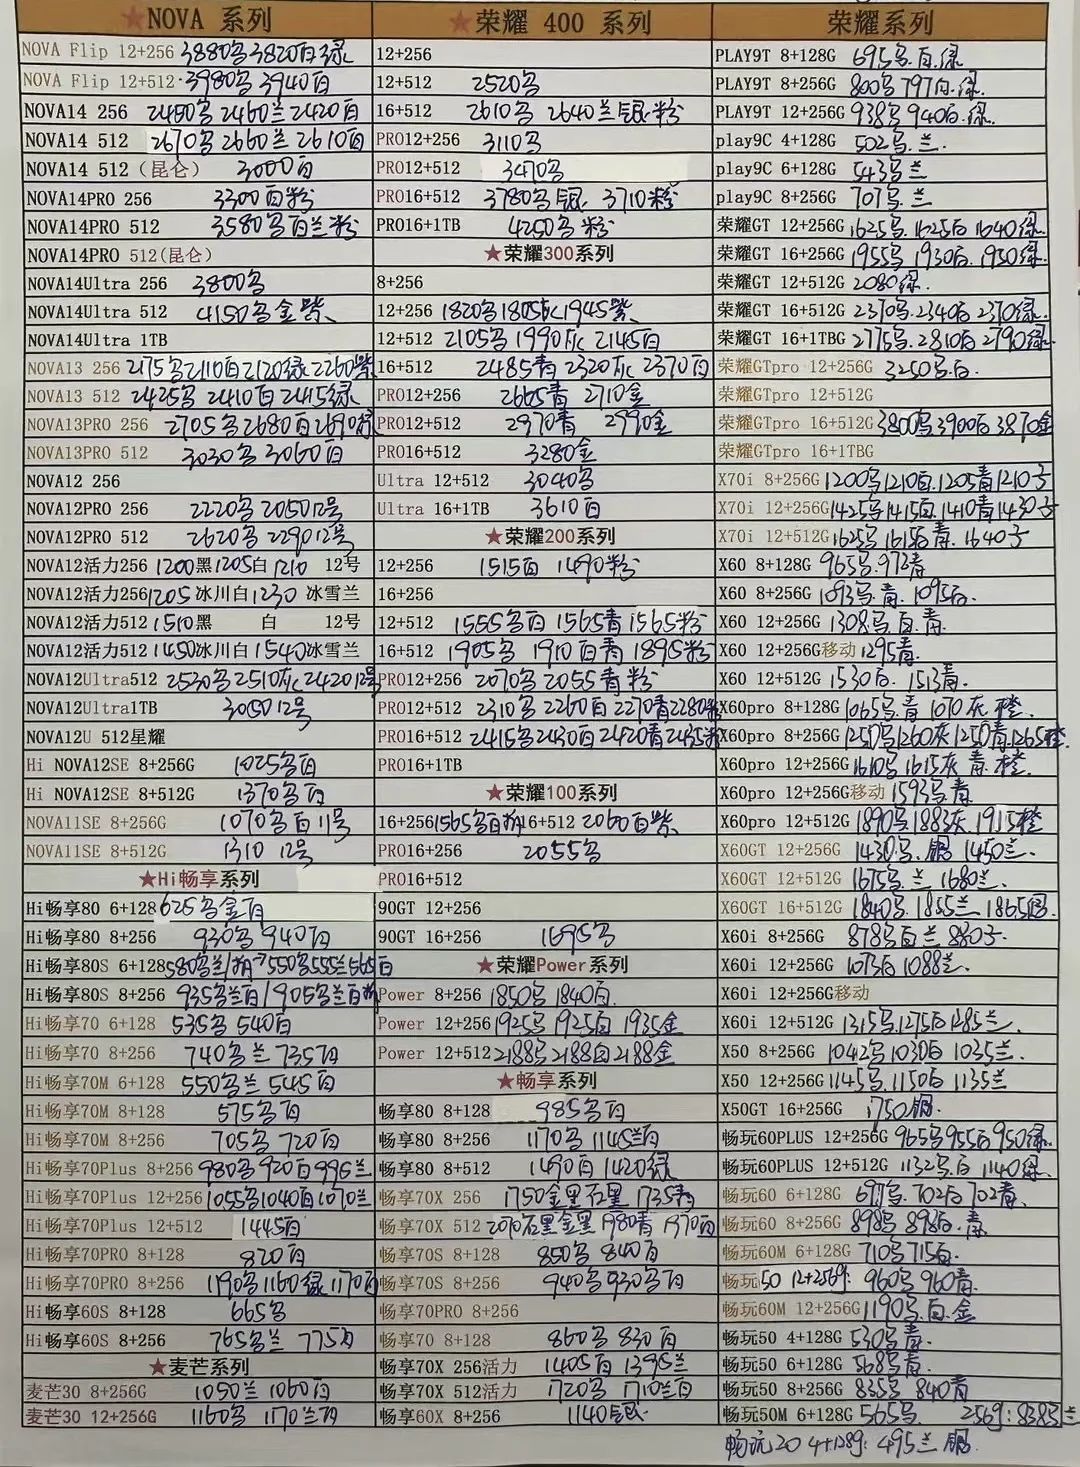 ★NOVA 系列
NOVA Flip 12+256 3880当3820白绿
NOVA Flip 12+512 3980当 3940白
NOVA14 256 2480当 2460兰 2420白
NOVA14 512 2670当 2660兰 2610白
NOVA14 512（昆仑） 3000白
NOVA14PRO 256 3300白粉
NOVA14PRO 512 3580当白兰粉
NOVA14PRO 512(昆仑)
NOVA14Ultra 256 3800当
NOVA14Ultra 512 4150当金紫
NOVA14Ultra 1TB
NOVA13 256 2175当2110白2120绿2260紫
NOVA13 512 2425当 2410白 2415绿
NOVA13PRO 256 2705当2680白2690绿
NOVA13PRO 512 3030当 3060白
NOVA12 256
NOVA12PRO 256 2220当 2050 12号
NOVA12PRO 512 2620当 2290 12号
NOVA12活力256 1200黑1205白1210 12号
NOVA12活力256 1205 冰川白1230 冰雪兰
NOVA12活力512 1510黑 白 12号
NOVA12活力512 1450冰川白1540冰雪兰
NOVA12Ultra512 2530当2510灰2420 12号
NOVA12Ultra1TB 3050 12号
NOVA12U 512星耀
Hi NOVA12SE 8+256G 1025当白
Hi NOVA12SE 8+512G 1370当白
NOVA11SE 8+256G 1070当白 11号
NOVA11SE 8+512G 1310 12号
★Hi畅享系列
Hi畅享80 6+128 625当金白
Hi畅享80 8+256 930当 940白
Hi畅享80S 6+128 580当兰/
Hi畅享80S 8+256 935当兰白/905当兰白
Hi畅享70 6+128 535当 540白
Hi畅享70 8+256 740当兰 735白
Hi畅享70M 6+128 550当兰 545白
Hi畅享70M 8+128 575当白
Hi畅享70M 8+256 705当 720白
Hi畅享70Plus 8+256 980当 920白 995兰
Hi畅享70Plus 12+256 1055当1040白1070兰
Hi畅享70Plus 12+512 1445白
Hi畅享70PRO 8+128 820白
Hi畅享70PRO 8+256 1190当1160绿1170白
Hi畅享60S 8+128 665当
Hi畅享60S 8+256 765当兰 775白
★麦芒系列
麦芒30 8+256G 1050兰 1060白
麦芒30 12+256G 1160当 1170兰白
★荣耀 400 系列
12+256
12+512 2520当
16+512 2610当 2640兰银粉
PRO12+256 3110当
PRO12+512 3470当
PRO16+512 3780当银 3710粉
PRO16+1TB 4250当粉
★荣耀300系列
8+256
12+256 1820当1805灰1945紫
12+512 2105当 1990灰 2145白
16+512 2485青 2320灰 2370白
PRO12+256 2665青 2710金
PRO12+512 2970青 2990金
PRO16+512 3280金
Ultra 12+512 3040当
Ultra 16+1TB 3610白
★荣耀200系列
12+256 1515白 1490粉
16+256
12+512 1555当白 1565青 1565粉
16+512 1905当 1910白青 1895粉
PRO12+256 2070当 2055青粉
PRO12+512 2310当 2260白 2270青2280粉
PRO16+512 2415当2430白2420青2435粉
PRO16+1TB
★荣耀100系列
16+256 1565当白 16+512 2060白紫
PRO16+256 2055当
PRO16+512
90GT 12+256
90GT 16+256 1695当
★荣耀Power系列
Power 8+256 1850当 1840白
Power 12+256 1925当 1925白 1935金
Power 12+512 2188当 2188白 2188金
★畅享系列
畅享80 8+128 985当白
畅享80 8+256 1170当 1145兰白
畅享80 8+512 1490白 1420绿
畅享70X 256 1750金黑石黑 1735青
畅享70X 512 2070石黑金黑 1980青 1970白
畅享70S 8+128 850当 840白
畅享70S 8+256 940当930当白
畅享70PRO 8+256
畅享70 8+128 860当 830白
畅享70X 256活力 1405白 1395兰
畅享70X 512活力 1720当 1710兰白
畅享60X 8+256 1140银
荣耀系列
PLAY9T 8+128G 695当.白.绿
PLAY9T 8+256G 800当 797白.绿.
PLAY9T 12+256G 938当 940白.绿.
play9C 4+128G 502当.兰.
play9C 6+128G 543当兰
play9C 8+256G 707当.兰
荣耀GT 12+256G 1625当. 1625白 1640绿.
荣耀GT 16+256G 1955当 1930白. 1950绿.
荣耀GT 12+512G 2080绿.
荣耀GT 16+512G 2370当.2340白 2370绿.
荣耀GT 16+1TBG 2775当.2810白2790绿.
荣耀GTpro 12+256G 3250当白.
荣耀GTpro 12+512G
荣耀GTpro 16+512G 3800当3900白3870金
荣耀GTpro 16+1TBG
X70i 8+256G 1200当1210白.1205青1210子
X70i 12+256G 1425当1415白.1410青1430子
X70i 12+512G 1625当 1615白青. 1640子
X60 8+128G 965当.972青
X60 8+256G 1093当.青. 1095白.
X60 12+256G 1308当.白.青.
X60 12+256G移动 1295青.
X60 12+512G 1530白. 1513青.
X60pro 8+128G 1065当.青 1070灰 橙.
X60pro 8+256G 1250当1260灰1250青1265橙
X60pro 12+256G 1610当1615灰 青 橙.
X60pro 12+256G移动 1593当青
X60pro 12+512G 1890当 1883灰. 1915橙
X60GT 12+256G 1430当. 银 1450兰.
X60GT 12+512G 1675当.兰 1680兰.
X60GT 16+512G 1840当. 1855兰 1865银.
X60i 8+256G 878当白兰 880子.
X60i 12+256G 1073白1088兰.
X60i 12+256G移动
X60i 12+512G 1315当.1275白1285兰.
X50 8+256G 1042当1030白 1035兰.
X50 12+256G 1145当.1150白 1135兰
X50GT 16+256G 1750银.
畅玩60PLUS 12+256G 965当955白950绿
畅玩60PLUS 12+512G 1132当.白 1140绿.
畅玩60 6+128G 697当. 702白 702青.
畅玩60 8+256G 898当 898白.青
畅玩60M 6+128G 710当 715白.
畅玩50 12+256g: 960当 960青.
畅玩60M 12+256G 1190当.白.金
畅玩50 4+128G 530当青.
畅玩50 6+128G 568当青.
畅玩50 8+256G 835当 840青
畅玩50M 6+128G 565当. 256g:838当兰
畅玩20 4+128g: 495兰 银.